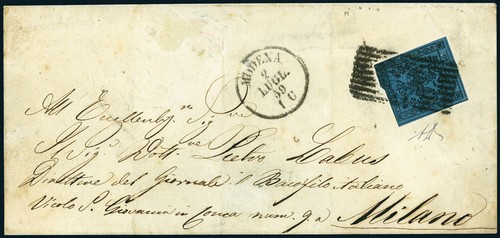 MODENA
2
LUGL.
59
1 C
All' Eccellen.mo Sig.re
Il Sig.r Dott.re Pietro Labus
Direttore del Giornale il Bauofilo italiano
Vicolo S. Giovanni in Conca num. 9. a Milano